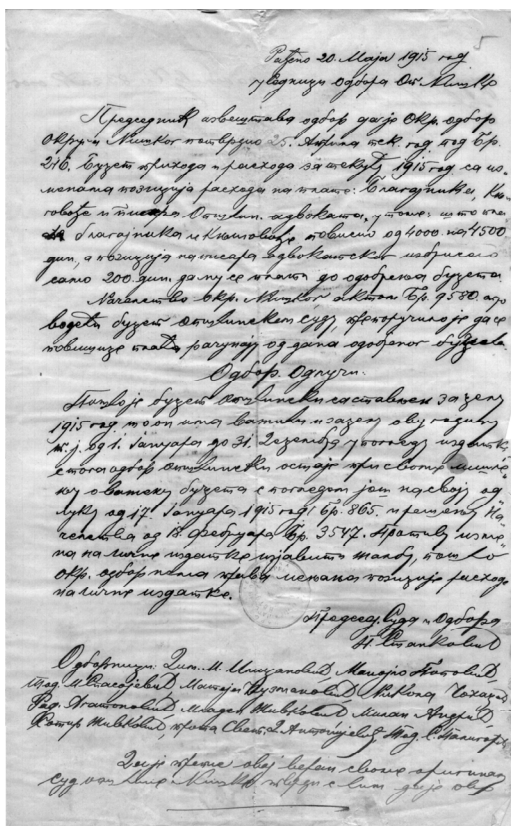 5
Рађено 20. Маја 1915 год
у седници одбора Оп. Нишке
Председник извештава одбор да је Окр. одбор
Округа Нишког потврдио 25. Априла тек. год. под Бр.
216. Буџет прихода и расхода за текућу 1915 год са из-
менама позиција расхода на плате: Благајника, Књи-
говође и писара Општин. адвоката, у томе: што пла-
благајника и књиговође повисио од 4000. на 4500
дин, а позиција на писара адвокатског избрисао
само 200. дин да му се плати до одобрења буџета
Начелство окр. Нишког актом Бр. 9580. спро-
водећи буџет општинском суду, препоручило је да се
повишице плата рачунају од дана одобреног буџета.
Одбор Одлучи.
Пошто је буџет општински састављен за целу
1915 год. то он има важити и за целу ову годину
т. ј. од 1. Јануара до 31. Децембра у погледу издатка
с тога одбор општински остаје при своме мишље-
њу о важењу буџета с погледом још на своју од-
луку од 17. Јануара 1915 год. Бр. 865. и решењу На-
челства од 18. Фебруара Бр. 3547. Против измена
на личне издатке изјавити жалбу, пошто
окр. одбор нема права мењати позиције расхода
на личне издатке.
Председ. Суда и Одбора
Н. Станковић
Одборници: Дим. М. Манојло
Тод. М. Спасојевић Матеја Кузмановић Никола
Рад. Млађен Живковић Милан Андрић
Живковић, прота Свет. Д. Антонијевић Тод. С.
Да је препис овај веран своме оригиналу
суд општине Нишке тврди